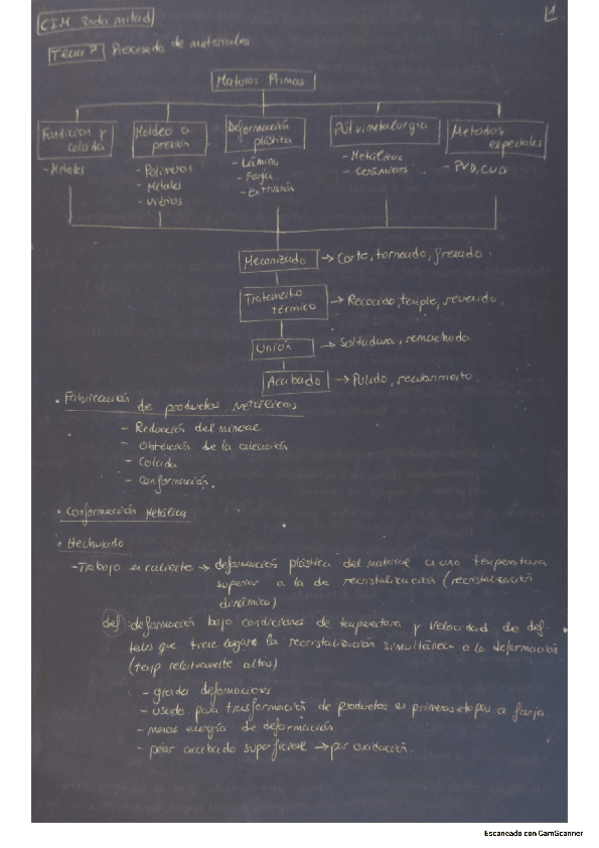 CIM 2nda mitad
1
Tema 7 Procesado de materiales
Materias Primas
Fundición y colada
Moldeo a presión
Deformación plástica
Pulvimetalurgia
Metodos especiales
- Metales
- Polimeros
- Metales
- Vidrios
- Lámina
- Forja
- Extrusión
- Metálicos
- Cerámicos
- PVD, CVD
Mecanizado → Corte, torneado, fresado.
Tratamiento térmico → Recocido, temple, revenido.
Unión → Soldadura, remachado
Acabado → Pulido, recubrimiento.
• Fabricación de productos metálicos
- Reducción del mineral
- Obtención de la aleación
- Colada
- Conformación.
• Conformación Metálica
• Hechurado
- Trabajo en caliente → deformación plástica del material a una temperatura
superior a la de recristalización (recristalización
dinámica)
def: deformación bajo condiciones de temperatura y velocidad de def.
tales que tiene lugar la recristalización simultánea a la deformación
(temp relativamente altas)
- grandes deformaciones
- usado para transformación de productos en primeras etapas o forja.
- menos energía de deformación
- peor acabado superficial → por oxidación.
Escaneado con CamScanner